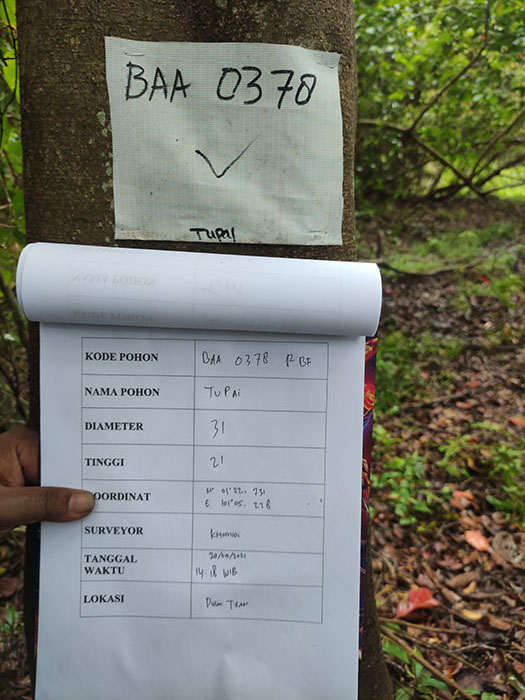 BAA 0378
TUPAI
KODE POHON BAA 0378 RBF
NAMA POHON TUPAI
DIAMETER 31
TINGGI 21
OORDINAT N° 01°22. 731
E 101°05. 228
SURVEYOR
TANGGAL WAKTU 20/09/2021
14:18 WIB
LOKASI